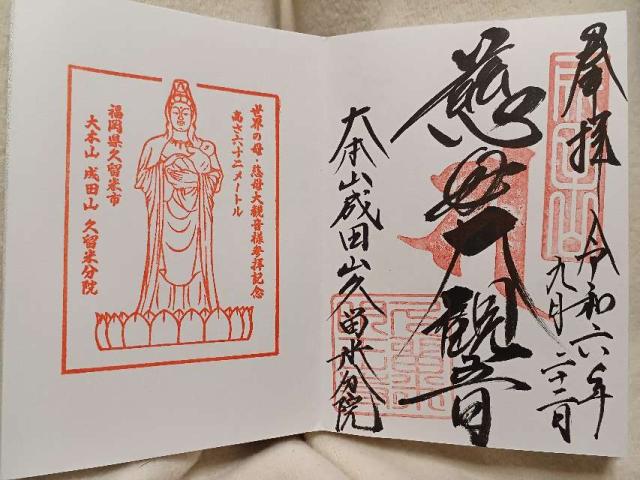 奉拝
令和六年
九月二十二日
慈母大観音
大本山成田山久留米分院
世界の母・慈母大観音様参拝記念
高さ六十二メートル
福岡県久留米市
大本山 成田山 久留米分院